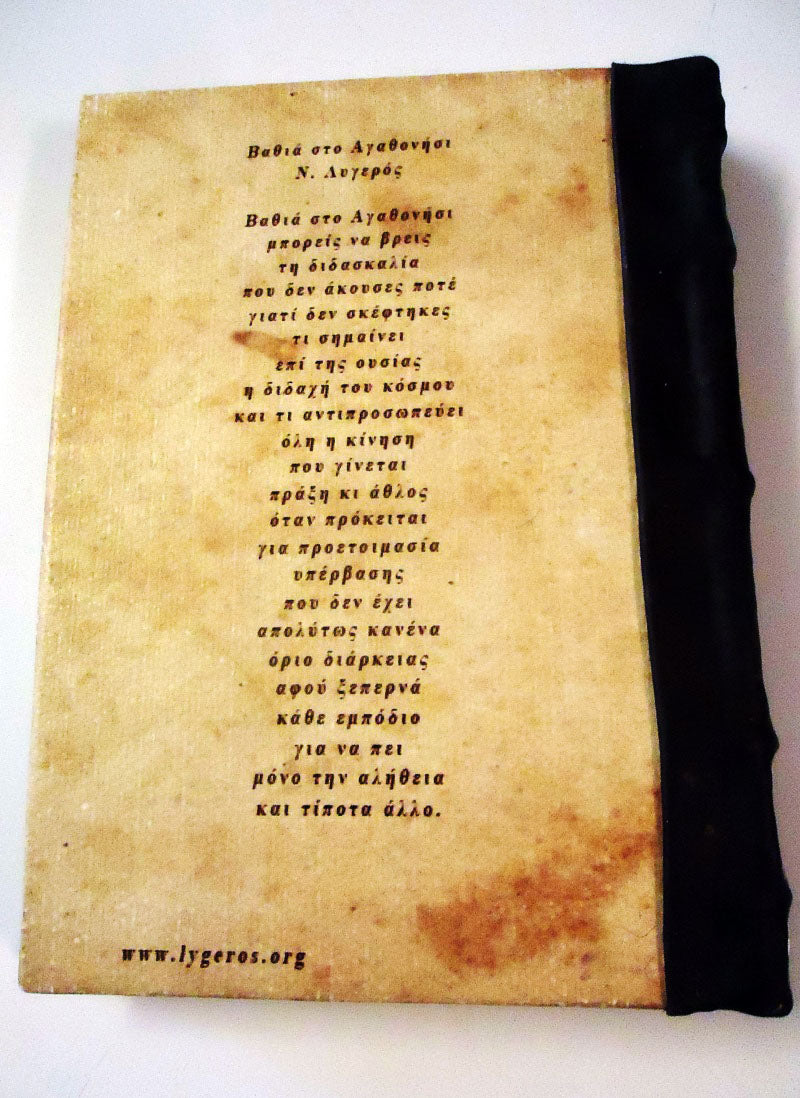 Βαθιά στο Αγαθονήσι
Ν. Λυγερός
Βαθιά στο Αγαθονήσι
μπορείς να βρεις
τη διδασκαλία
που δεν άκουσες ποτέ
γιατί δεν σκέφτηκες
τι σημαίνει
επί της ουσίας
η διδαχή του κόσμου
και τι αντιπροσωπεύει
όλη η κίνηση
που γίνεται
πράξη κι άθλος
όταν πρόκειται
για προετοιμασία
υπέρβασης
που δεν έχει
απολύτως κανένα
όριο διάρκειας
αφού ξεπερνά
κάθε εμπόδιο
για να πει
μόνο την αλήθεια
και τίποτα άλλο.
www.lygeros.org